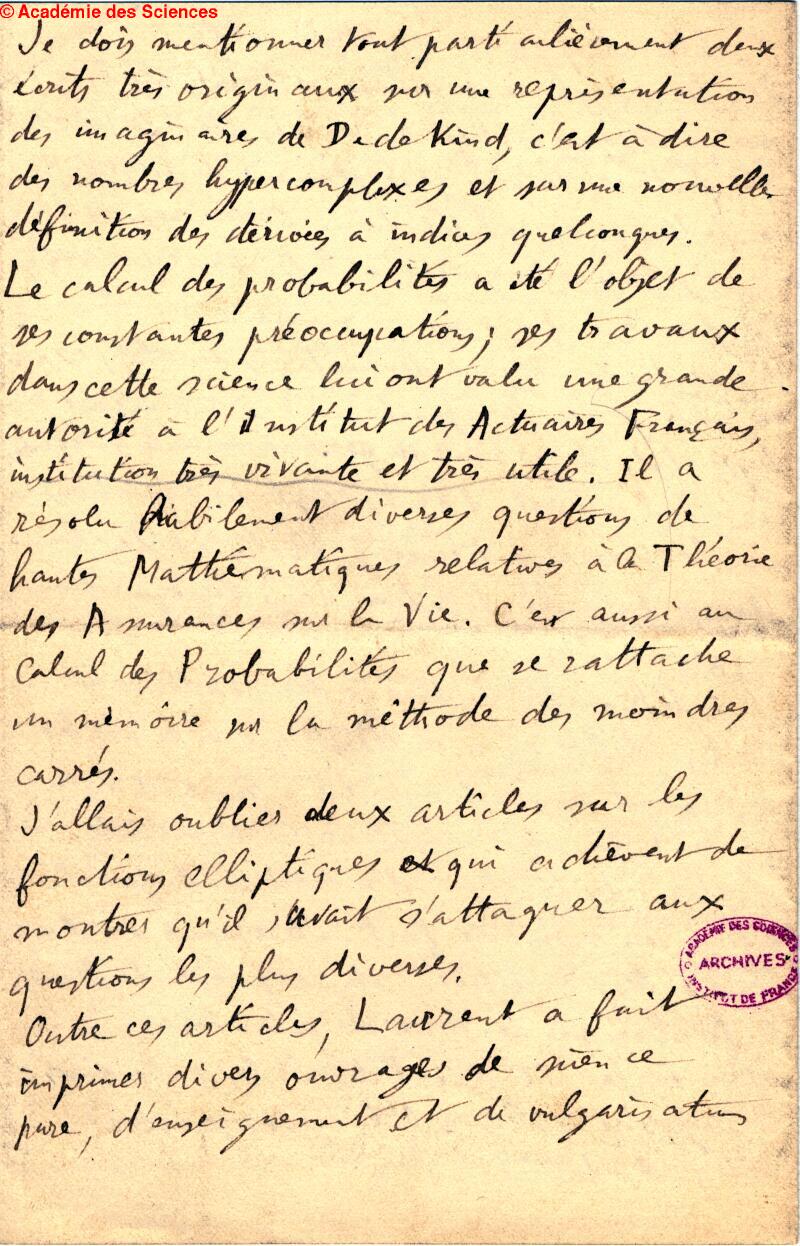 © Académie des Sciences
Je dois mentionner tout particulièrement deux
écrits très originaux sur une représentation
des imaginaires de Dedekind, c'est à dire
des nombres hypercomplexes et sur une nouvelle
définition des dérivées à indices quelconques.
Le calcul des probabilités a été l'objet de
ses constantes préoccupations; ses travaux
dans cette science lui ont valu une grande
autorité à l'Institut des Actuaires Français,
institution très vivante et très utile. Il a
résolu habilement diverses questions de
hautes Mathématiques relatives à la Théorie
des Assurances sur la Vie. C'est aussi au
Calcul des Probabilités que se rattache
un mémoire sur la méthode des moindres
carrés.
J'allais oublier deux articles sur les
fonctions elliptiques et qui achèvent de
montrer qu'il savait s'attaquer aux
questions les plus diverses.
ACADÉMIE DES SCIENCES
ARCHIVES
INSTITUT DE FRANCE
Outre ces articles, Laurent a fait
imprimer divers ouvrages de science
pure, d'enseignement et de vulgarisation